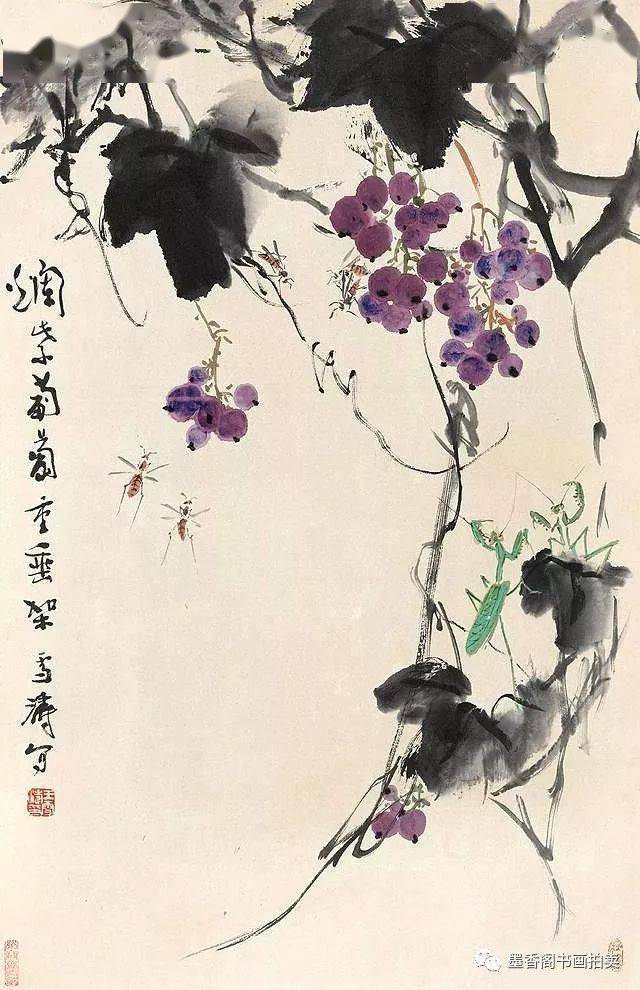 爛紫葡萄重垂架 雪濤写
墨香阁书画拍卖